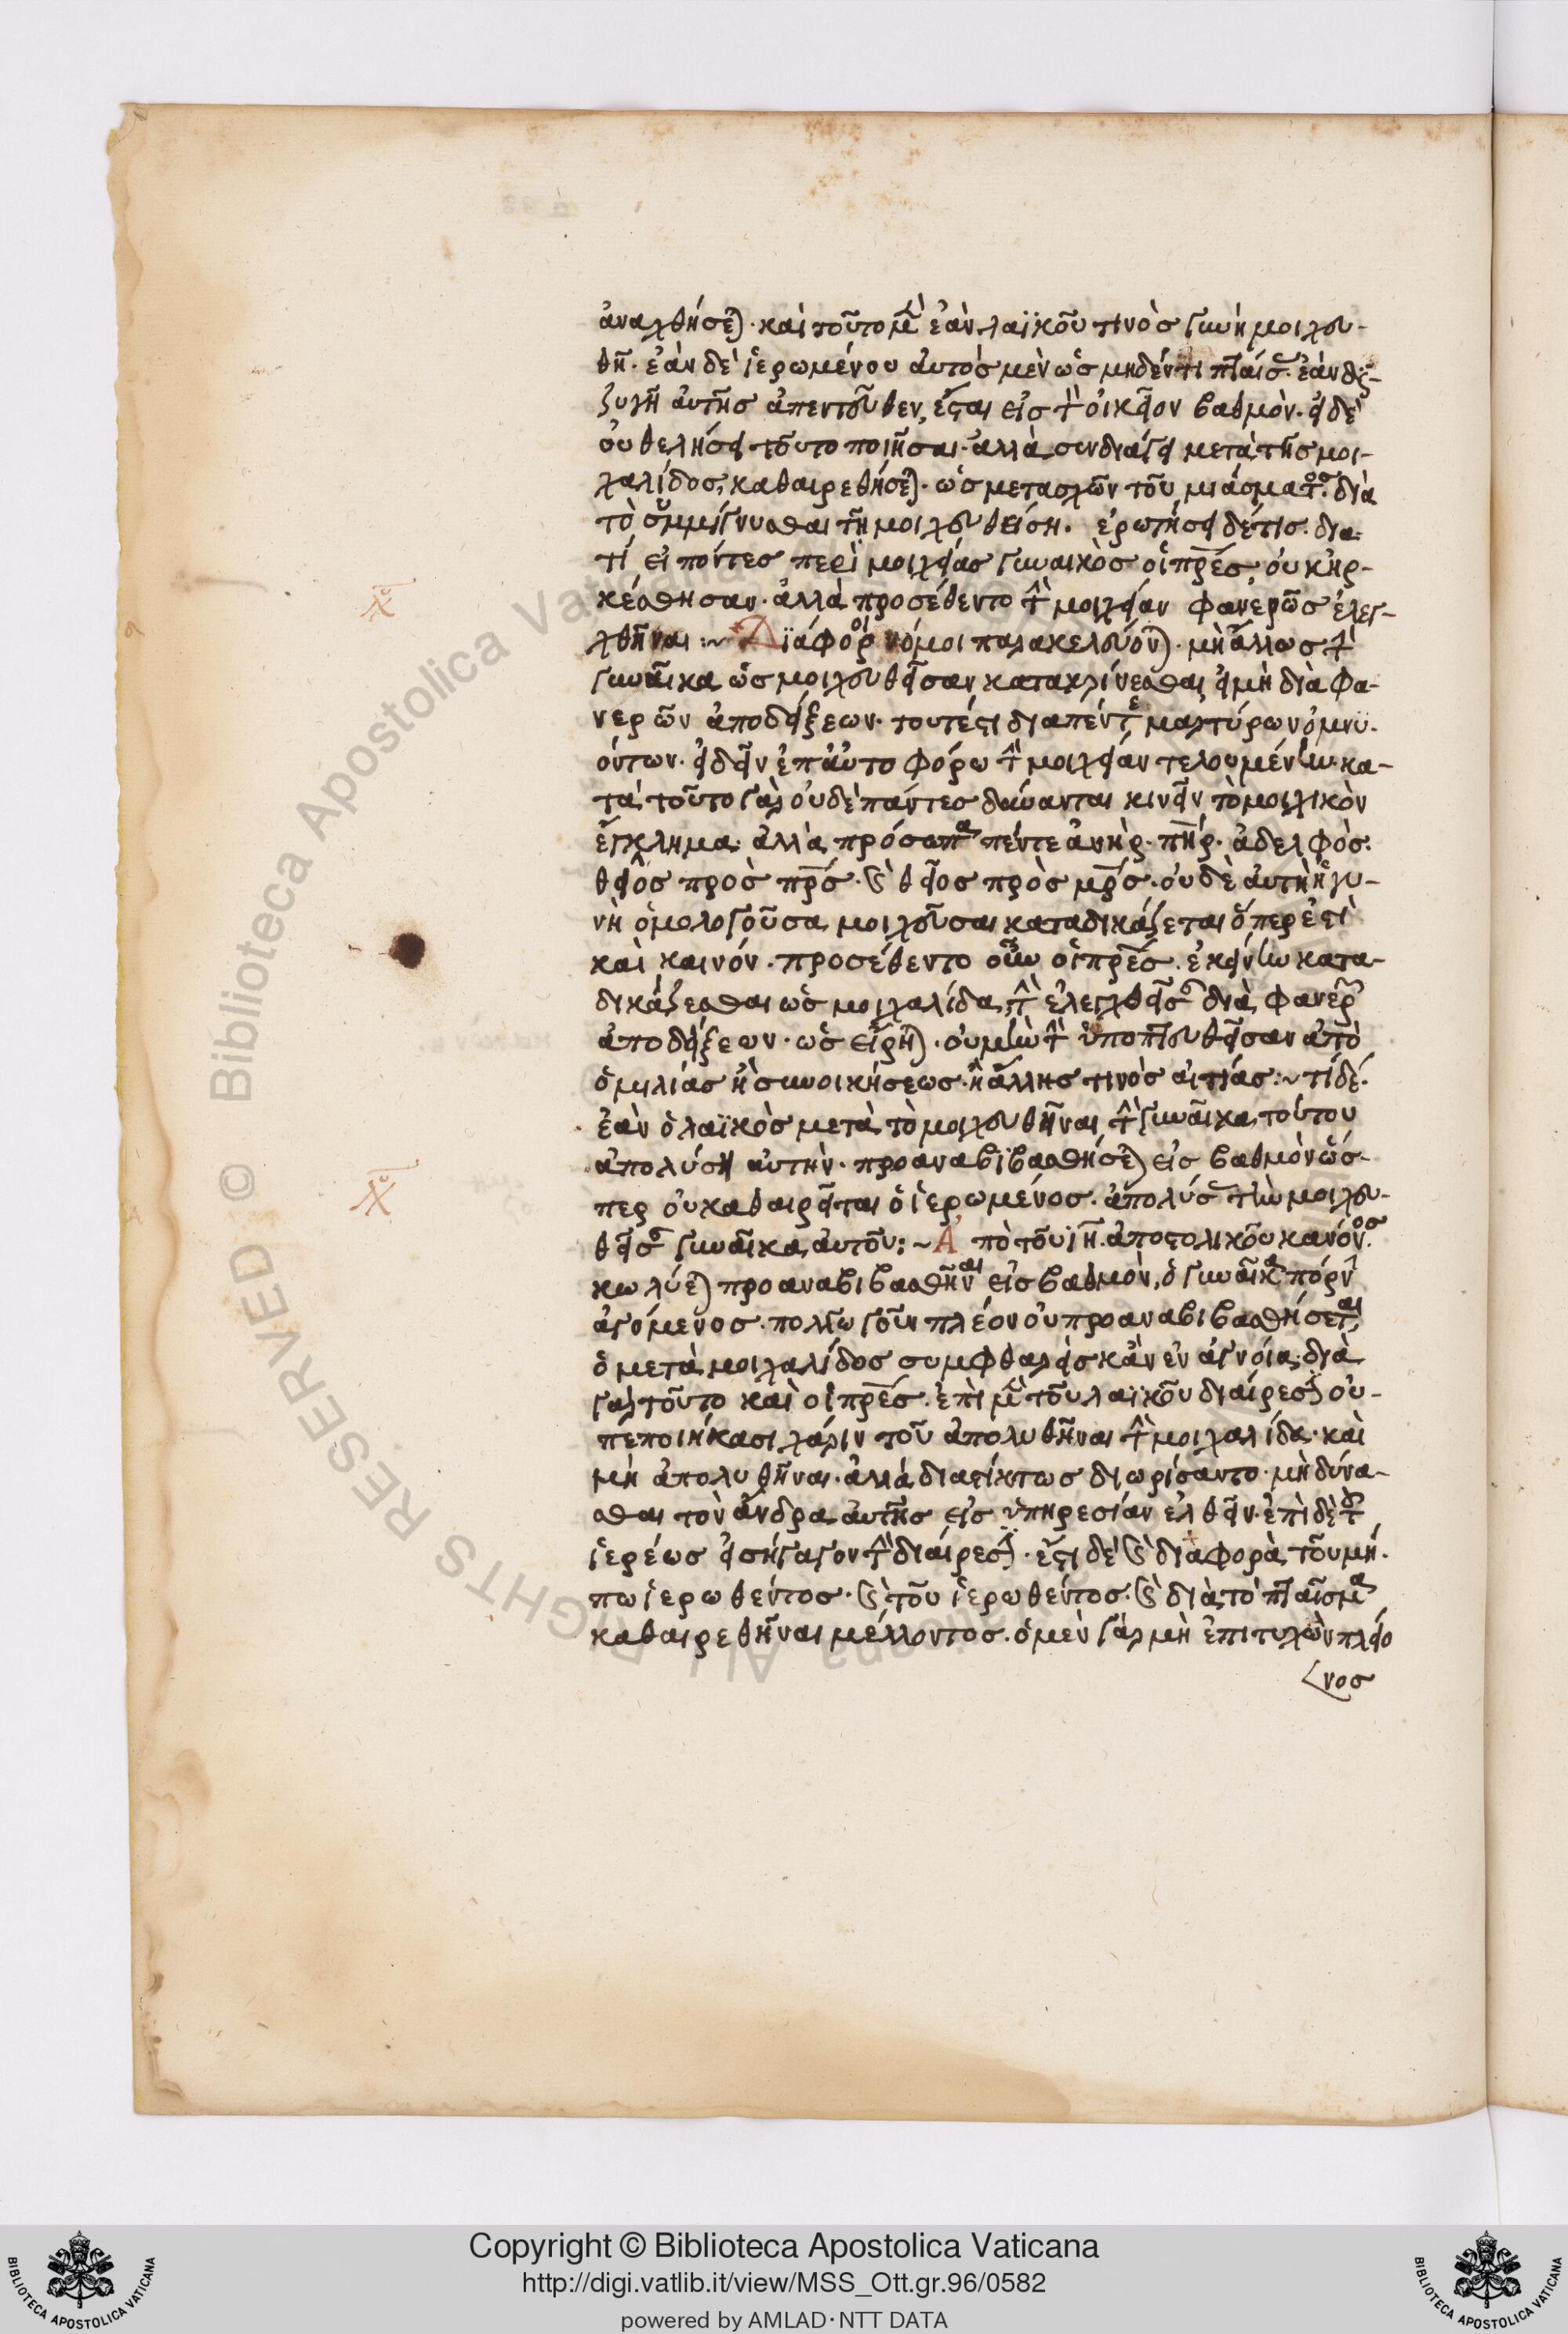 ἀναχθήσεται· καὶ τοῦτο μὲν ἐὰν λαϊκοῦ τινὸς γυνὴ μοιχευ-
θῆ· ἐὰν δὲ ἱερωμένου αὐτὸς μὲν ὡς μηδέν τι πταίσας ἐὰν δια-
ζυγῆ αὐτῆς ἀπεντεῦθεν, ἔσται εἰς τὸν οἰκεῖον βαθμὸν· εἰ δὲ
οὐ θελήσει τοῦτο ποιῆσαι· ἀλλὰ συνδιάγει μετὰ τῆς μοι-
χαλίδος, καθαιρεθήσεται· ὡς μετασχῶν τοῦ μιάσματος· διὰ
τὸ συμμίγνυσθαι τῆ μοιχευθείση. ἐρωτήσει δέ τις. δια
τί εἰπόντες περὶ μοιχείας γυναικὸς οἱ πρες, οὐκ ἠρ-
κέσθησαν· ἀλλὰ προσέθεντο τὴν μοιχείαν φανερῶς ἐλεγ-
χθῆναι :~ Διάφοροι νόμοι παρακελεύονται· μὴ ἄλλως τὴν
γυναῖκα ὡς μοιχευθεῖσαν κατακρίνεσθαι, εἰ μὴ διὰ φα-
νερῶν ἀποδείξεων· τουτέστι διὰ πέντε μαρτύρων ὀμνυ-
όντων· εἰδεῖν ἐπ' αὐτοφόρω τὴν μοιχείαν τελουμένην· κα-
τὰ τοῦτο γὰρ οὐδὲ πάντες δύνανται κινεῖν τὸ μοιχικὸν
ἔγκλημα· ἀλλὰ πρόσωπα πέντε ἀνὴρ· πηρ· ἀδελφὸς·
θεῖος πρὸς πρς· καὶ θεῖος πρὸς μρς· οὐδὲ αὐτὴ ἡ γυ-
νὴ ὁμολογοῦσα μοιχεῦσαι καταδικάζεται ὅπερ ἐστὶ
καὶ καινόν· προσέθεντο οὖν οἱ πρες. ἐκείνην κατα-
δικάζεσθαι ὡς μοιχαλίδα, τὴν ἐλεγχθεῖσαν διὰ φανερῶν
ἀποδείξεων· ὡς εἴρηται· οὐ μὴν τὴν ὑποπτευθεῖσαν ἀπὸ
ὁμιλίας ἢ συνοικήσεως· ἢ ἄλλης τινὸς αἰτίας :~ τί δέ.
ἐὰν ὁ λαϊκὸς μετὰ τὸ μοιχευθῆναι τὴν γυναῖκα τούτου
ἀπολύση αὐτὴν· προαναβιβασθήσεται εἰς βαθμὸν ὥσ-
περ οὐ καθαιρεῖται ὁ ἱερωμένος. ἀπολύσας τὴν μοιχευ-
θεῖσαν γυναῖκα αὐτοῦ :~ Ἀπὸ τοῦ ιη ἀποστολικοῦ κανόνος
κωλύεται προαναβιβασθῆναι εἰς βαθμὸν, ὁ γυναῖκα πόρνην
ἀγόμενος. πολλῶ γοῦν πλέον οὐ προαναβιβασθήσεται
ὁ μετὰ μοιχαλίδος συμφθαρεὶς κἂν ἐν ἀγνοία· διὰ
γὰρ τοῦτο καὶ οἱ πρες. ἐπὶ μὲν τοῦ λαϊκοῦ διαίρεσιν οὐ-
πεποιήκασι χάριν τοῦ ἀπολυθῆναι τὴν μοιχαλίδα· καὶ
μὴ ἀπολυθῆναι. ἀλλὰ διαστίκτως διωρίσαντο· μὴ δύνα-
σθαι τὸν ἄνδρα αὐτῆς εἰς ὑπηρεσίαν ἐλθεῖν· ἐπὶ δὲ τοῦ
ἱερέως εἰσήγαγον τὴν διαίρεσιν· ἔστι δὲ καὶ διαφορὰ τοῦ μή-
πω ἱερωθέντος· καὶ τοῦ ἱερωθέντος. καὶ διὰ τὸ πταῖσμα
καθαιρεθῆναι μέλλοντος. ὁ μὲν γὰρ μὴ ἐπιτυχὼν πλείο
νος
Copyright © Biblioteca Apostolica Vaticana
http://digi.vatlib.it/view/MSS_Ott.gr.96/0582
powered by AMLAD · NTT DATA